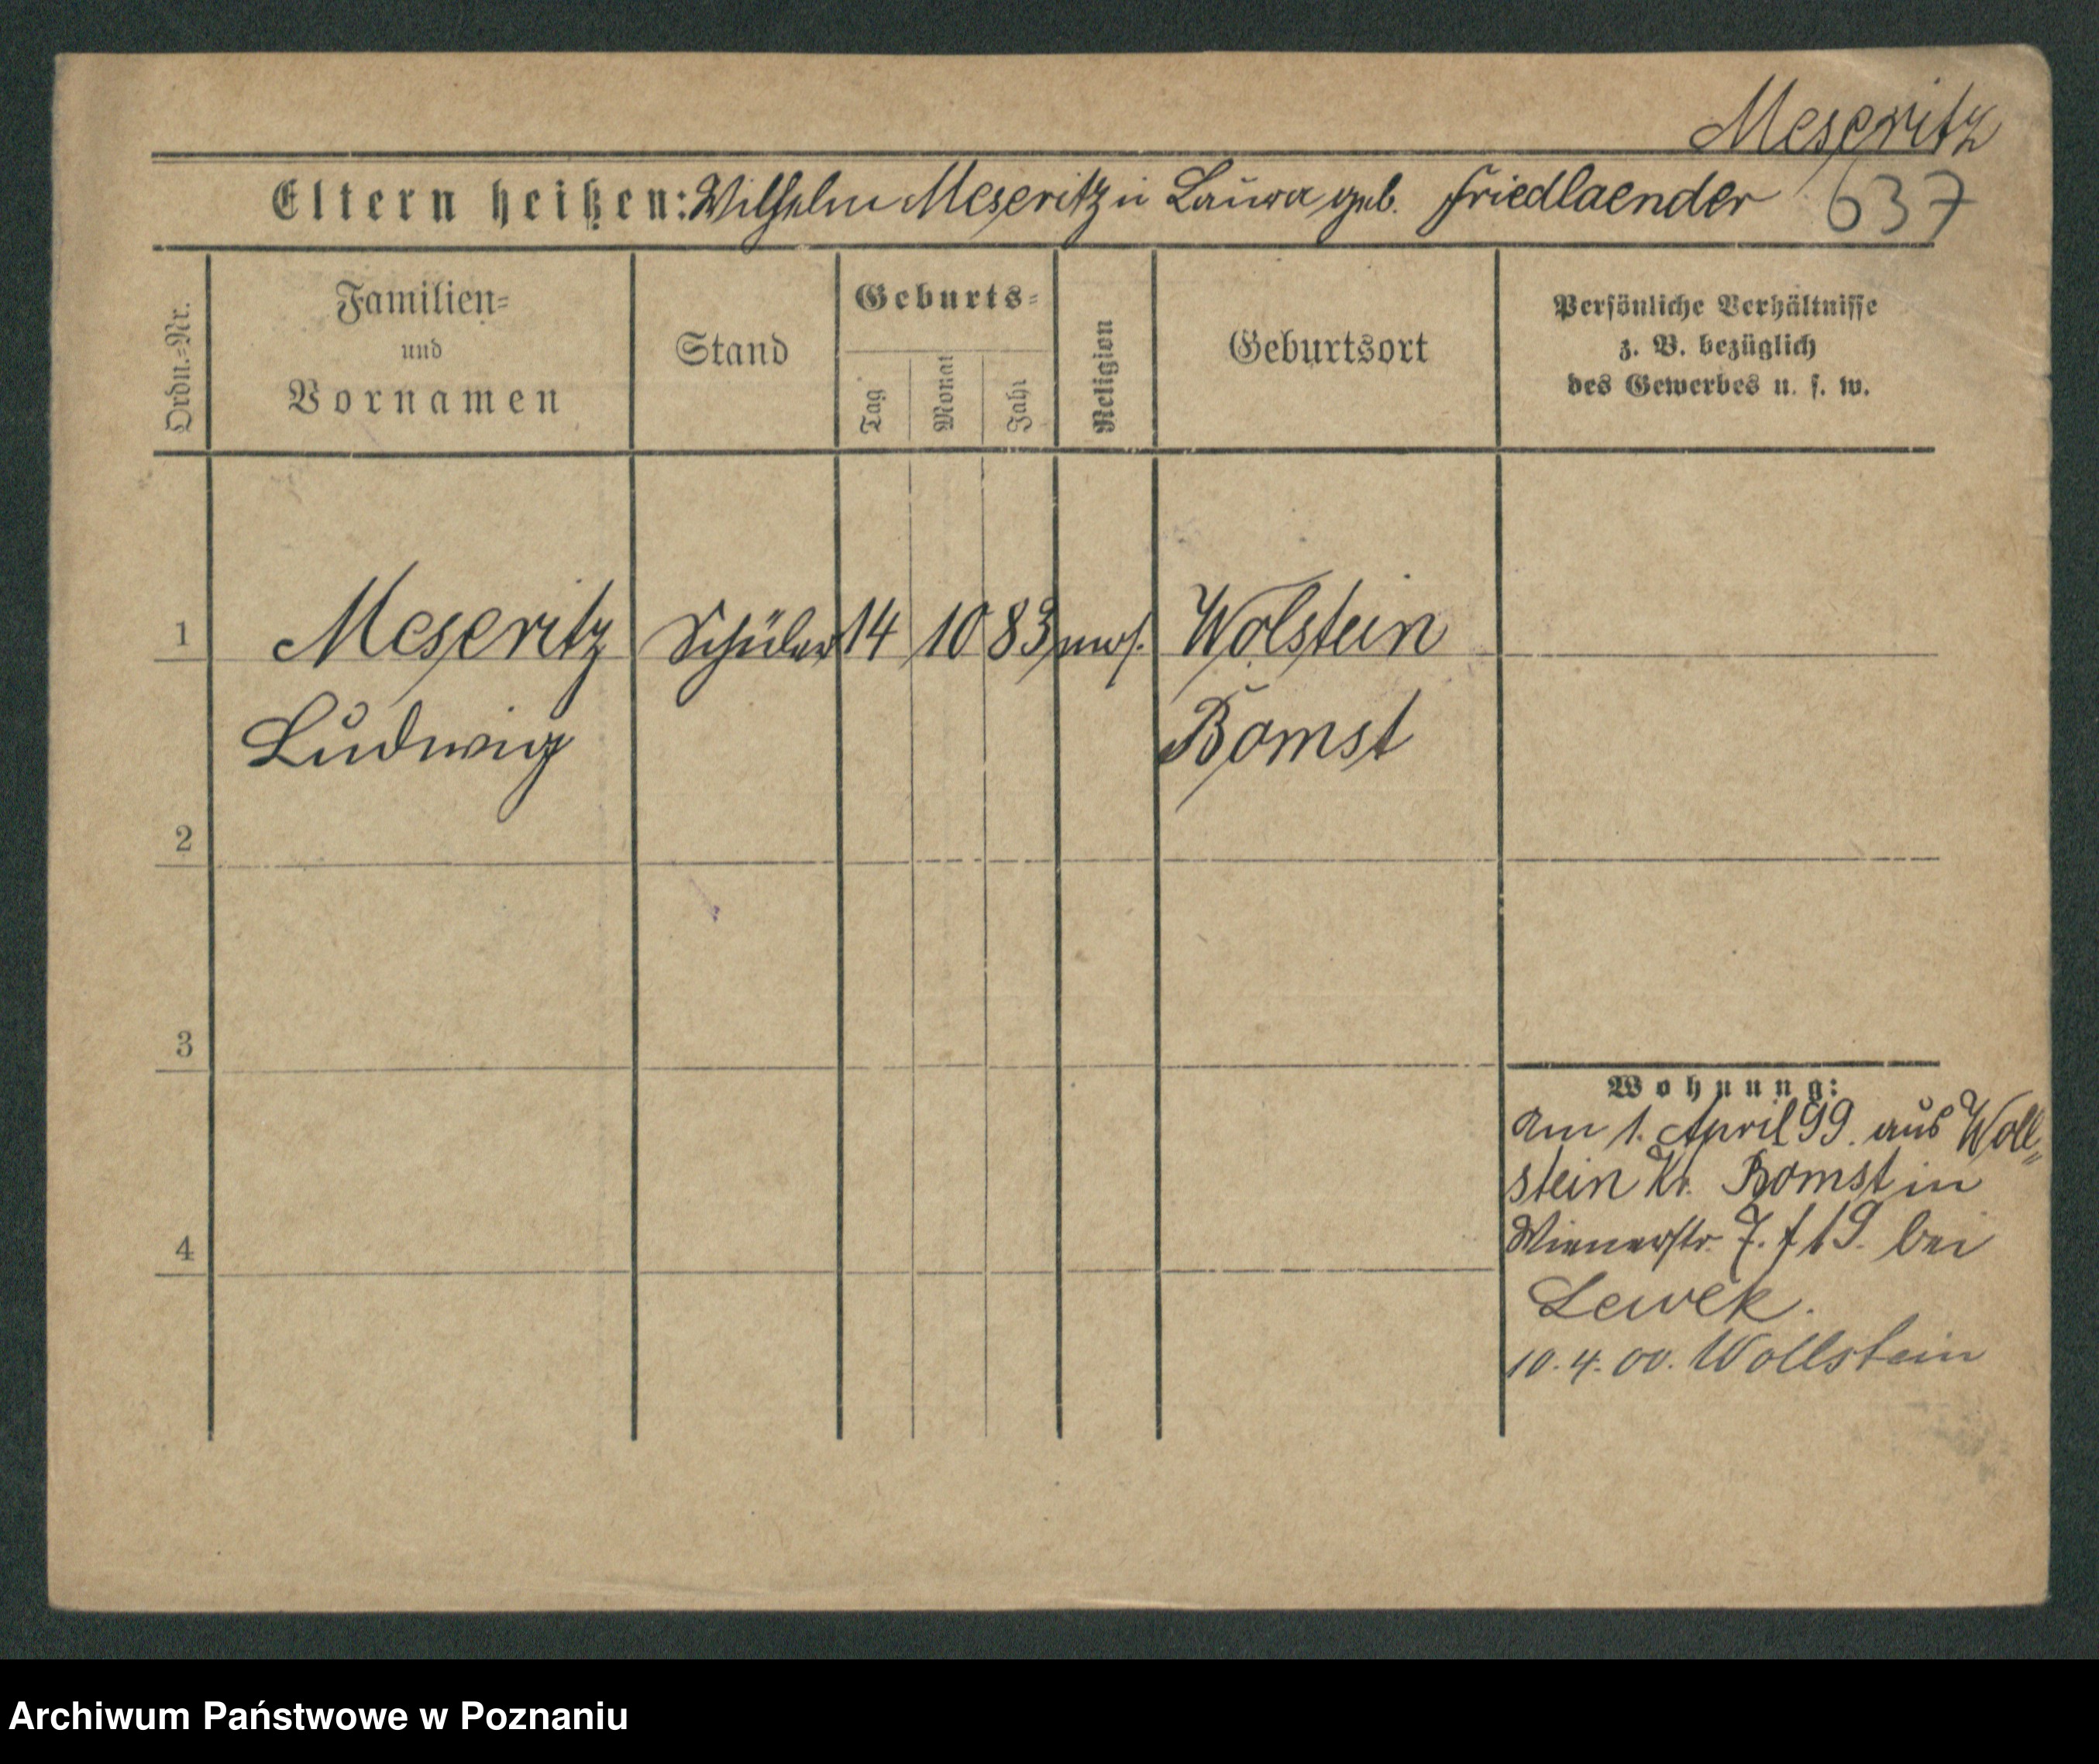 Meseritz
Eltern heißen: Wilhelm Meseritz u Laura geb. Friedlaender 637
Ordn.=Nr.
Familien=
und
Vornamen
Stand
Geburts=
Tag
Monat
Jahr
Religion
Geburtsort
Persönliche Verhältnisse
z. B. bezüglich
des Gewerbes u. s. w.
1 Meseritz Schüler 14 10 83 mos. Wolstein
Ludwig Bomst
2
3
Wohnung:
Am 1. April 99. aus Woll=
stein Kr. Bomst in
4
Wienerstr. 7. bei
Lewek.
10.4.00. Wollstein
Archiwum Państwowe w Poznaniu